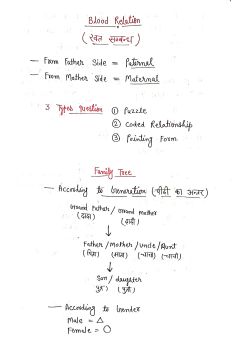 Blood Relation
(रक्त सम्बन्ध)
— From Father Side = Paternal
— From Mother Side = Maternal
3 Types Question ① Puzzle
② Coded Relationship
③ Pointing Form
Family Tree
— According to Generation (पीढ़ी का अन्तर)
Grand Father / Grand Mother
(दादा) (दादी)
Father / Mother / Uncle / Aunt
(पिता) (माता) (चाचा) (चाची)
Son / daughter
(पुत्र) (पुत्री)
— According to Gender
Male = △
Female = ○